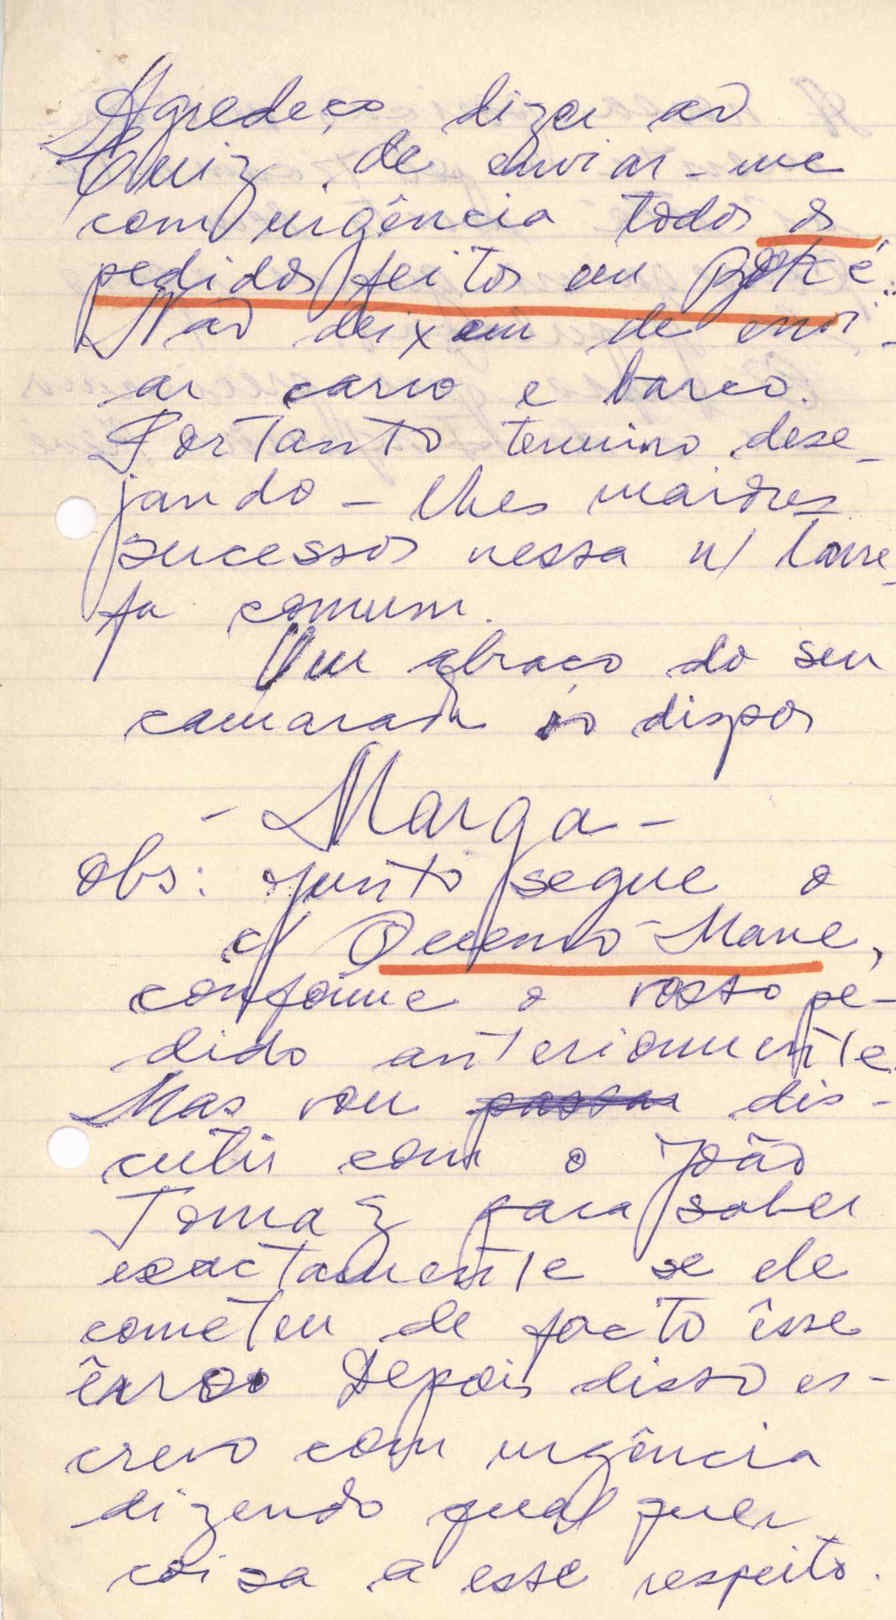 Agredeço dizer ao
Luiz, de enviar-me
com urgência todos os
pedidos feitos em Boké.
Não deixem de envi-
ar carro e barco.
Portanto termino dese-
jando-lhes maiores
sucessos nessa n/ tarre-
fa comum.
Um abraço do seu
camarada ao dispor
- Marga -
Obs: Junto segue o
c/ Quemo-Mané,
conforme o vosso pe-
dido anteriormente.
Mas vou passar dis-
cutir com o João
Tomaz para saber
exactamente se ele
cometeu de facto êsse
êrro. Depois disso es-
crevo com urgência
dizendo qualquer
coisa a esse respeito.